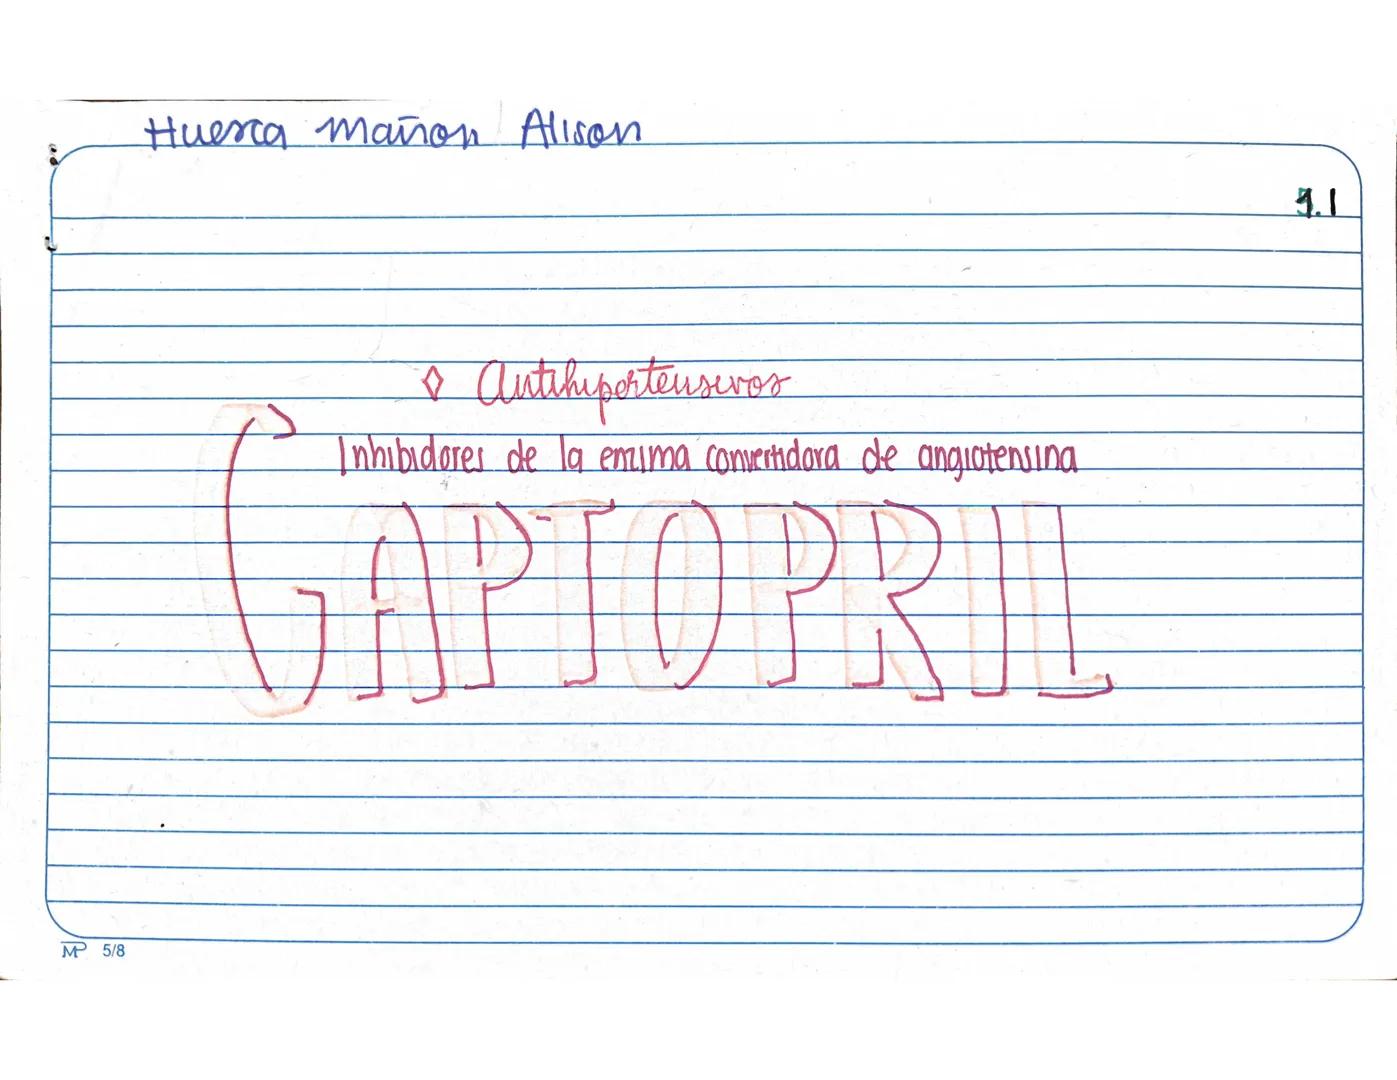 Huesca Mañon Alison
9.1
◊ Antihipertensivos
Inhibidores de la enzima convertidora de angiotensina
CAPTOPRIL
MP 5/8